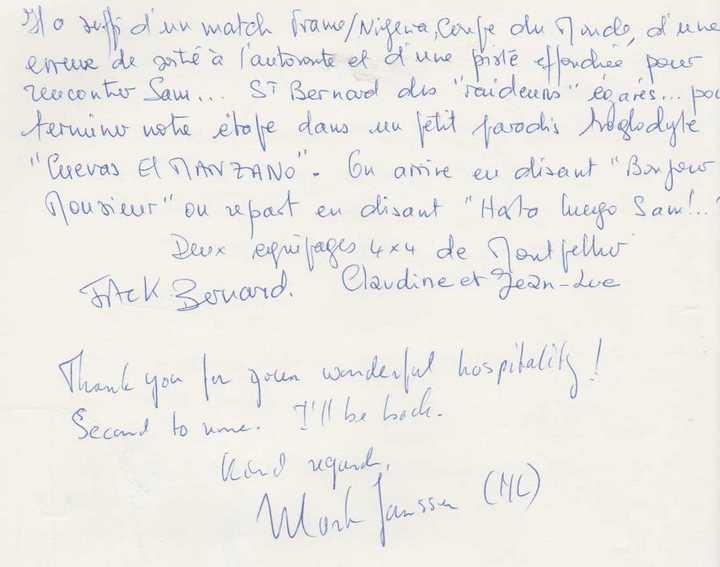 Il a suffi d'un match France/Nigeria, Coupe du Monde, d'une
erreur de sortie à l'autoroute et d'une piste effondrée pour
rencontrer Sam... ST Bernard des "raideurs" égarés... pou
terminer notre étape dans un petit paradis troglodyte
"Cuevas El MANZANO". On arrive en disant "Bonjour
Monsieur" on repart en disant "Hasta luego Sam!.."
Deux équipages 4x4 de Montpellier
Jack Bernard. Claudine et Jean-Luc
Thank you for your wonderful hospitality!
Second to none. I'll be back.
Kind regards,
Mark Janssen (NL)